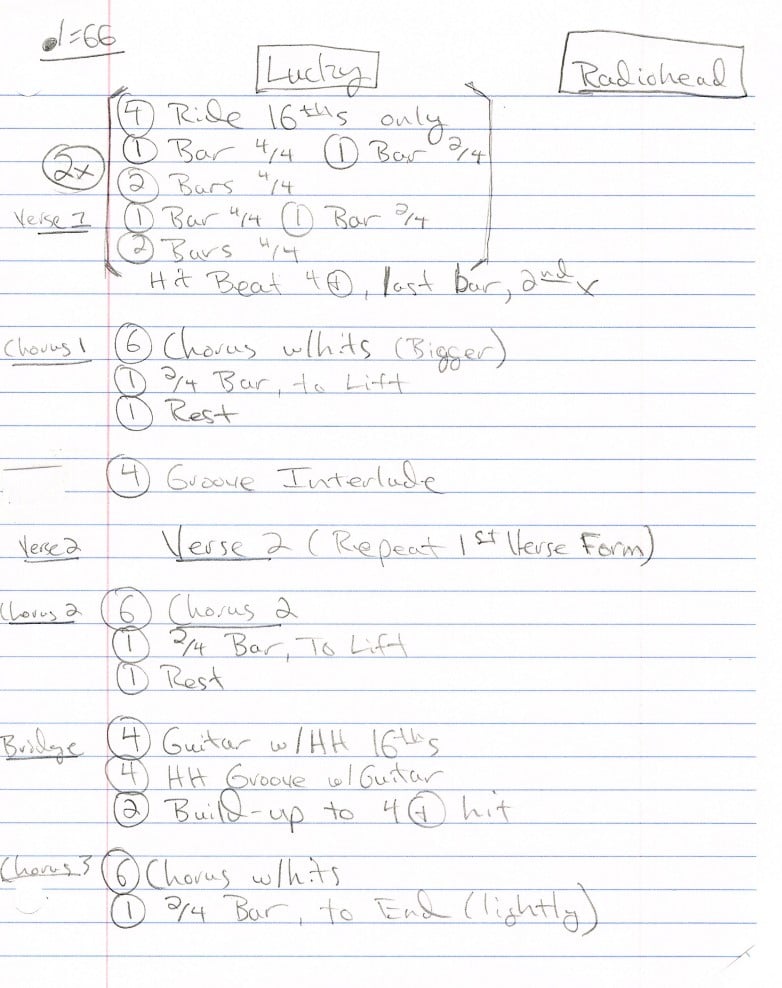 ♩=66
Lucky
Radiohead
④ Ride 16ths only
① Bar 4/4 ① Bar 2/4
2x
② Bars 4/4
Verse 1 ① Bar 4/4 ① Bar 2/4
② Bars 4/4
Hit Beat 4⊕, last bar, 2nd x
Chorus 1 ⑥ Chorus w/hits (Bigger)
① 2/4 Bar, to Lift
① Rest
④ Groove Interlude
Verse 2 Verse 2 (Repeat 1st Verse Form)
Chorus 2 ⑥ Chorus 2
① 2/4 Bar, To Lift
① Rest
Bridge ④ Guitar w/HH 16ths
④ HH Groove w/Guitar
② Build-up to 4⊕ hit
Chorus 3 ⑥ Chorus w/hits
① 2/4 Bar, to End (lightly)